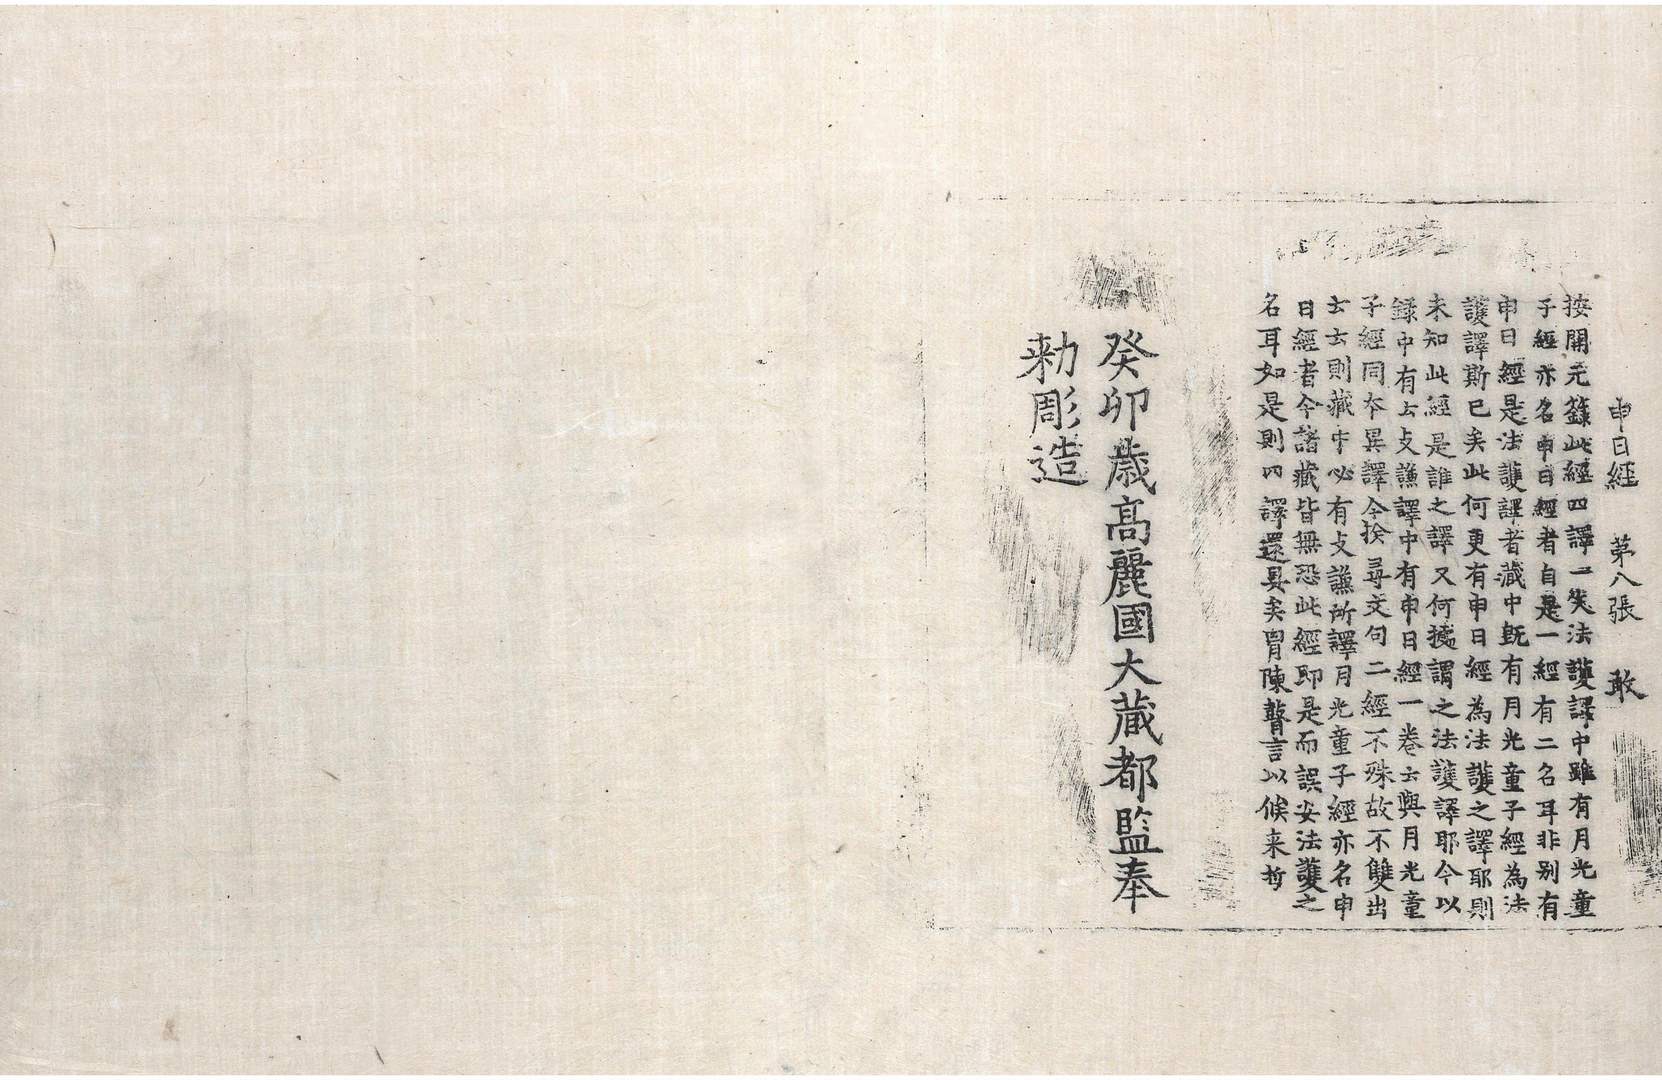 申日經 第八張 敢
按開元錄此經四譯一失法護譯中雖有月光童
子經亦名申日經者自是一經有二名耳非別有
申日經是法護譯者藏中旣有月光童子經為法
護譯斯已矣此何更有申日經為法護之譯耶則
未知此經是誰之譯又何據謂之法護譯耶今以
錄中有云支謙譯中有申日經一卷云與月光童
子經同本異譯今撿尋文句二經不殊故不雙出
云云則藏中必有支謙所譯月光童子經亦名申
日經者今諸藏皆無恐此經即是而誤安法護之
名耳如是則四譯還具矣冐陳瞽言以候来哲
癸卯歲高麗國大藏都監奉
勑彫造